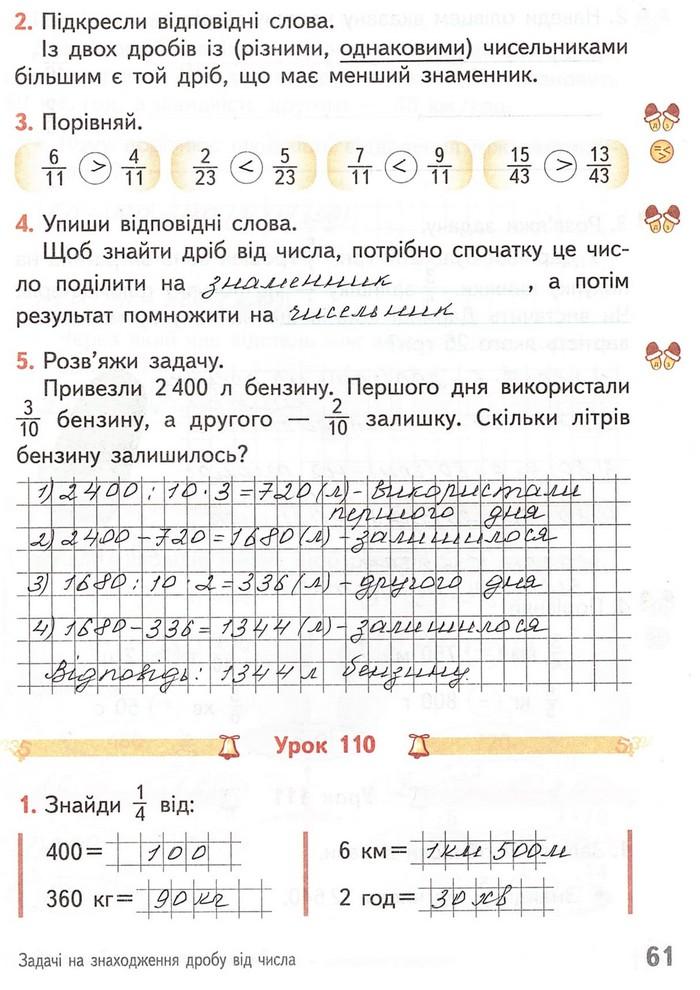 2. Підкресли відповідні слова.
Із двох дробів із (різними, однаковими) чисельниками
більшим є той дріб, що має менший знаменник.
3. Порівняй.
6/11 > 4/11 2/23 < 5/23 7/11 < 9/11 15/43 > 13/43
4. Упиши відповідні слова.
Щоб знайти дріб від числа, потрібно спочатку це чис-
ло поділити на знаменник , а потім
результат помножити на чисельник .
5. Розв’яжи задачу.
Привезли 2 400 л бензину. Першого дня використали
3/10 бензину, а другого — 2/10 залишку. Скільки літрів
бензину залишилось?
1) 2400 : 10 · 3 = 720 (л) - використали
першого дня
2) 2400 - 720 = 1680 (л) - залишилося
3) 1680 : 10 · 2 = 336 (л) - другого дня
4) 1680 - 336 = 1344 (л) - залишилося
Відповідь: 1344 л бензину.
Урок 110
1. Знайди 1/4 від:
400 = 100 6 км = 1км 500м
360 кг = 90 кг 2 год = 30 хв
Задачі на знаходження дробу від числа 61